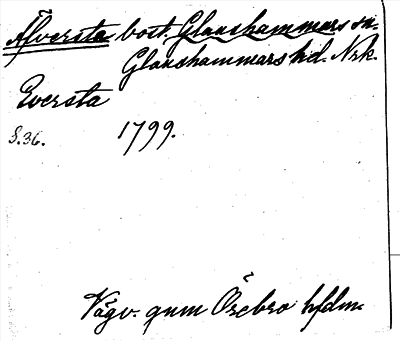 Älversta bost. Glanshammars sn.
Glanshammars hd. Nrk.
Eversta
S. 36. 1799.
Vägv. gnm Örebro hfdm.